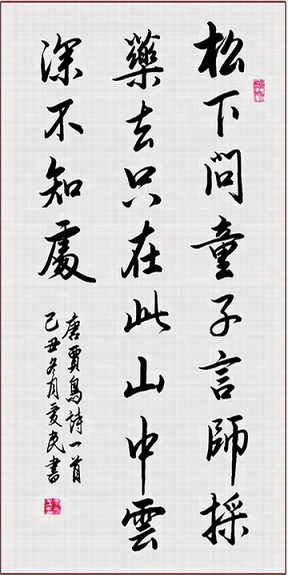 松下問童子言師採
藥去只在此山中雲
深不知處
唐賈島詩一首
己丑冬月愛民書